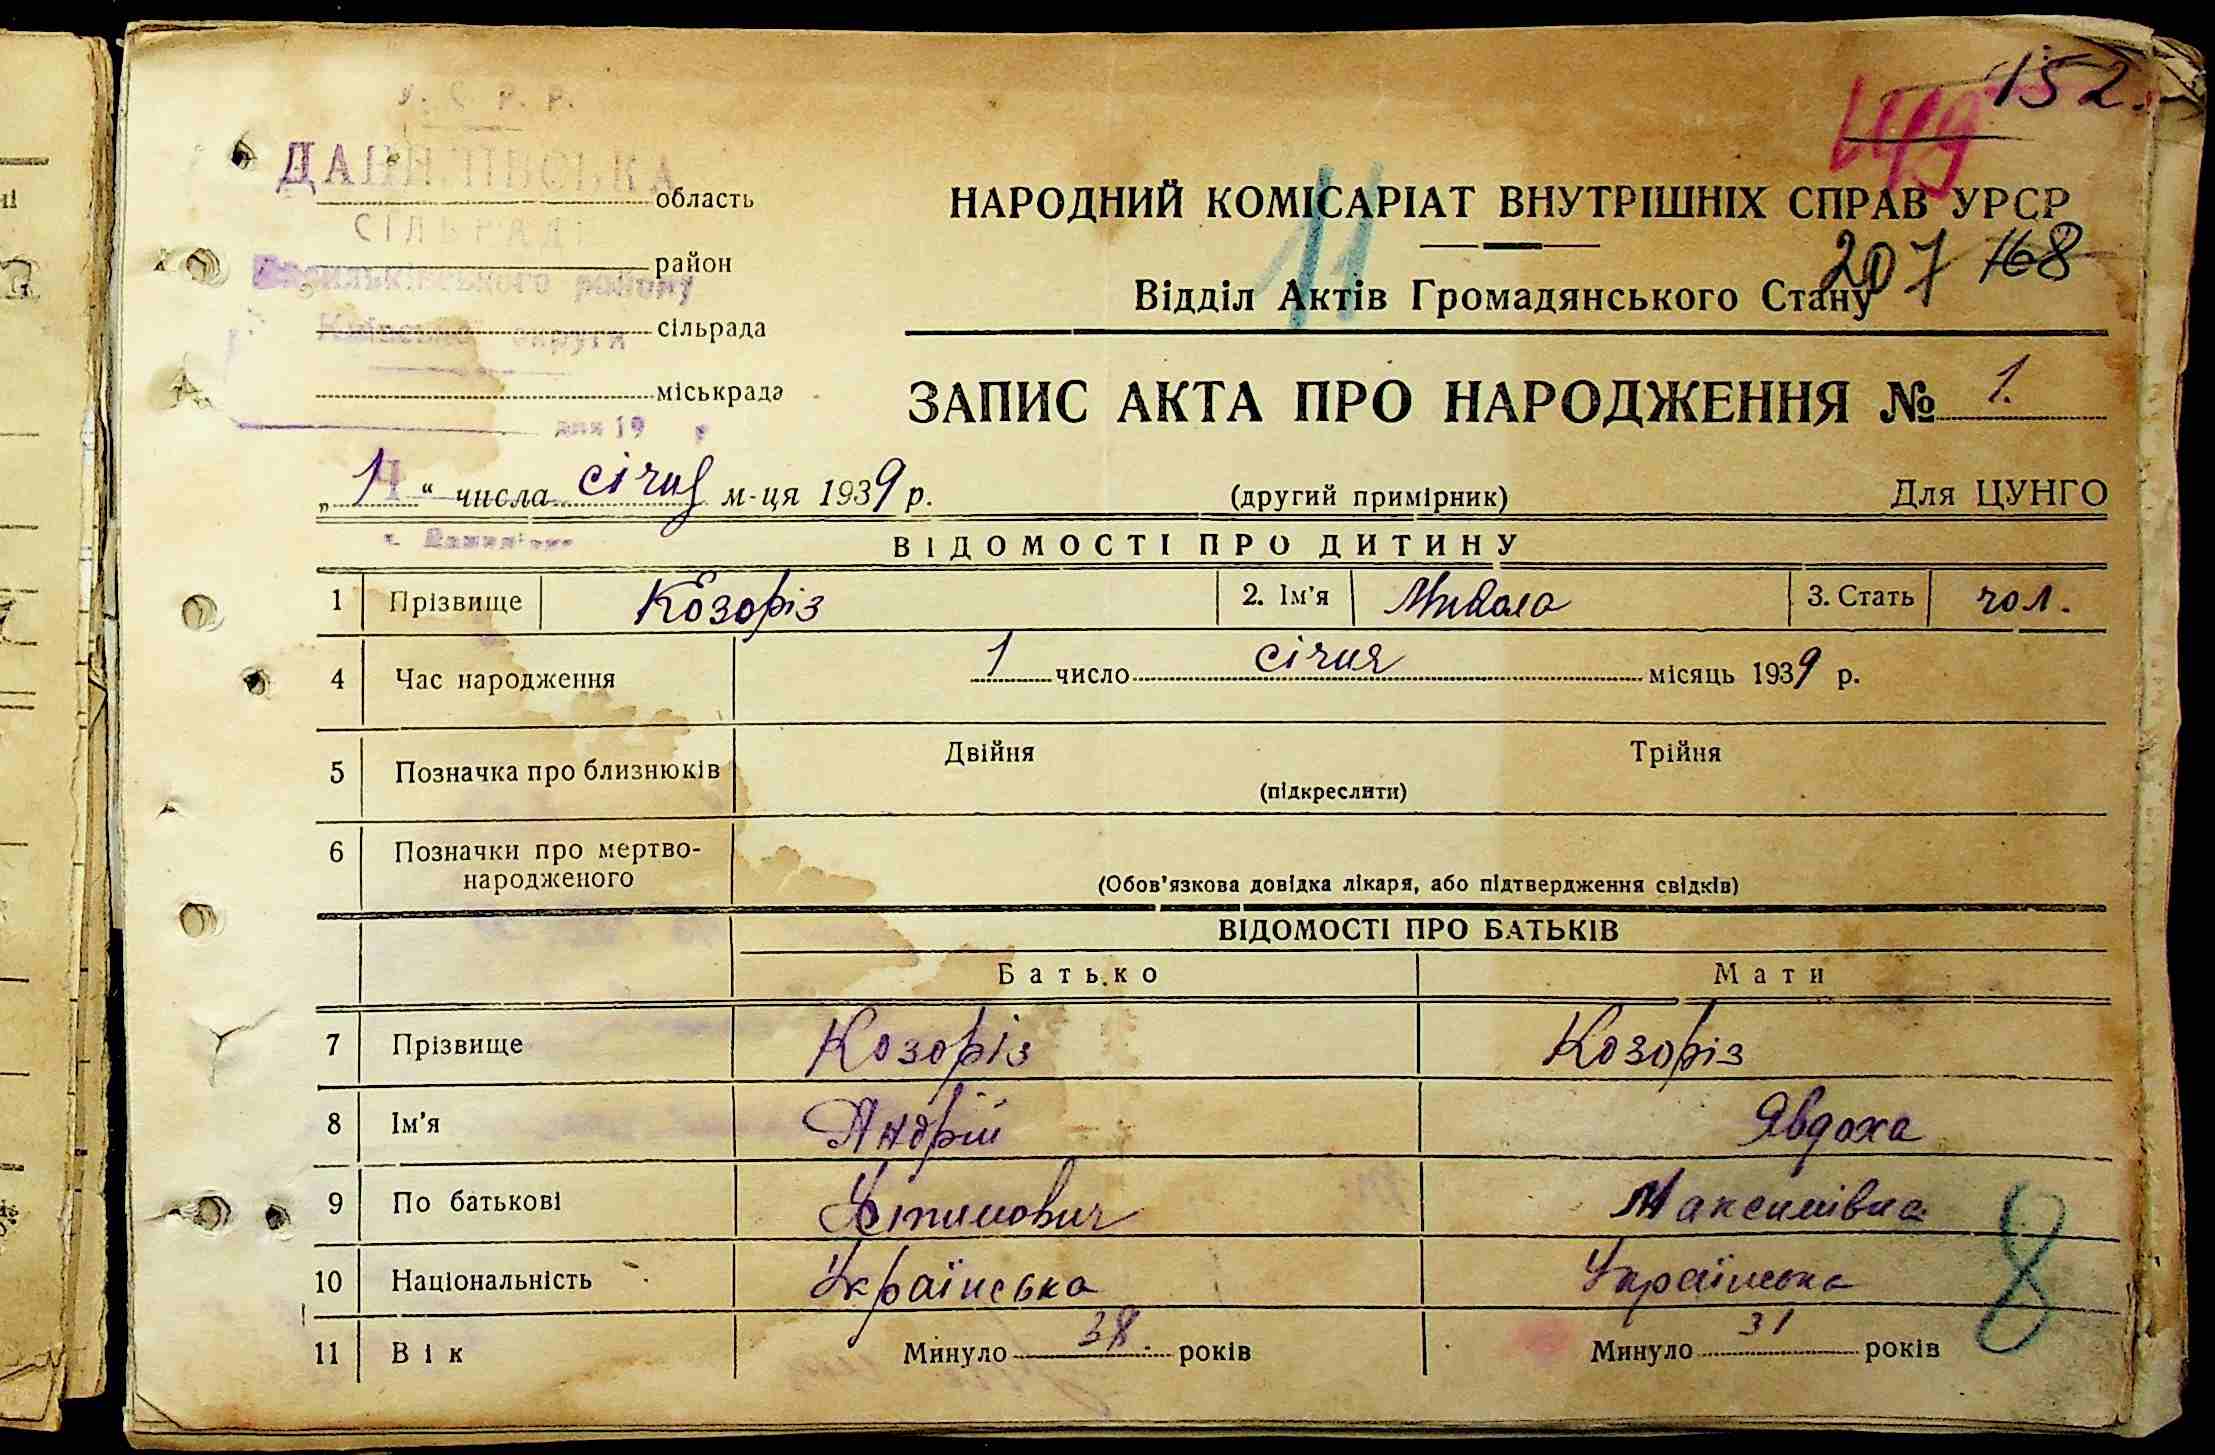 У. С Р. Р.
152.
149
ДАНИЛІВСЬКА
область
СІЛЬРАДА
НАРОДНИЙ КОМІСАРІАТ ВНУТРІШНІХ СПРАВ УРСР
11
район
Васильківського району
207 168
Відділ Актів Громадянського Стану
Київської округи
сільрада
міськрада
ЗАПИС АКТА ПРО НАРОДЖЕННЯ № 1.
дня 19 р
„ 1 “ числа січня м-ця 1939 р.
(другий примірник)
Для ЦУНГО
с. Данилівка
ВІДОМОСТІ ПРО ДИТИНУ
1 Прізвище Козоріз 2. Ім'я Микола 3. Стать чол.
4 Час народження 1 число січня місяць 1939 р.
5 Позначка про близнюків Двійня Трійня
(підкреслити)
6 Позначки про мертво-
народженого
(Обов'язкова довідка лікаря, або підтвердження свідків)
ВІДОМОСТІ ПРО БАТЬКІВ
Батько Мати
7 Прізвище Козоріз Козоріз
8 Ім'я Андрій Явдоха
9 По батькові Устимович Максимівна
10 Національність Українська Українська
8
11 Вік Минуло 38 років Минуло 31 років